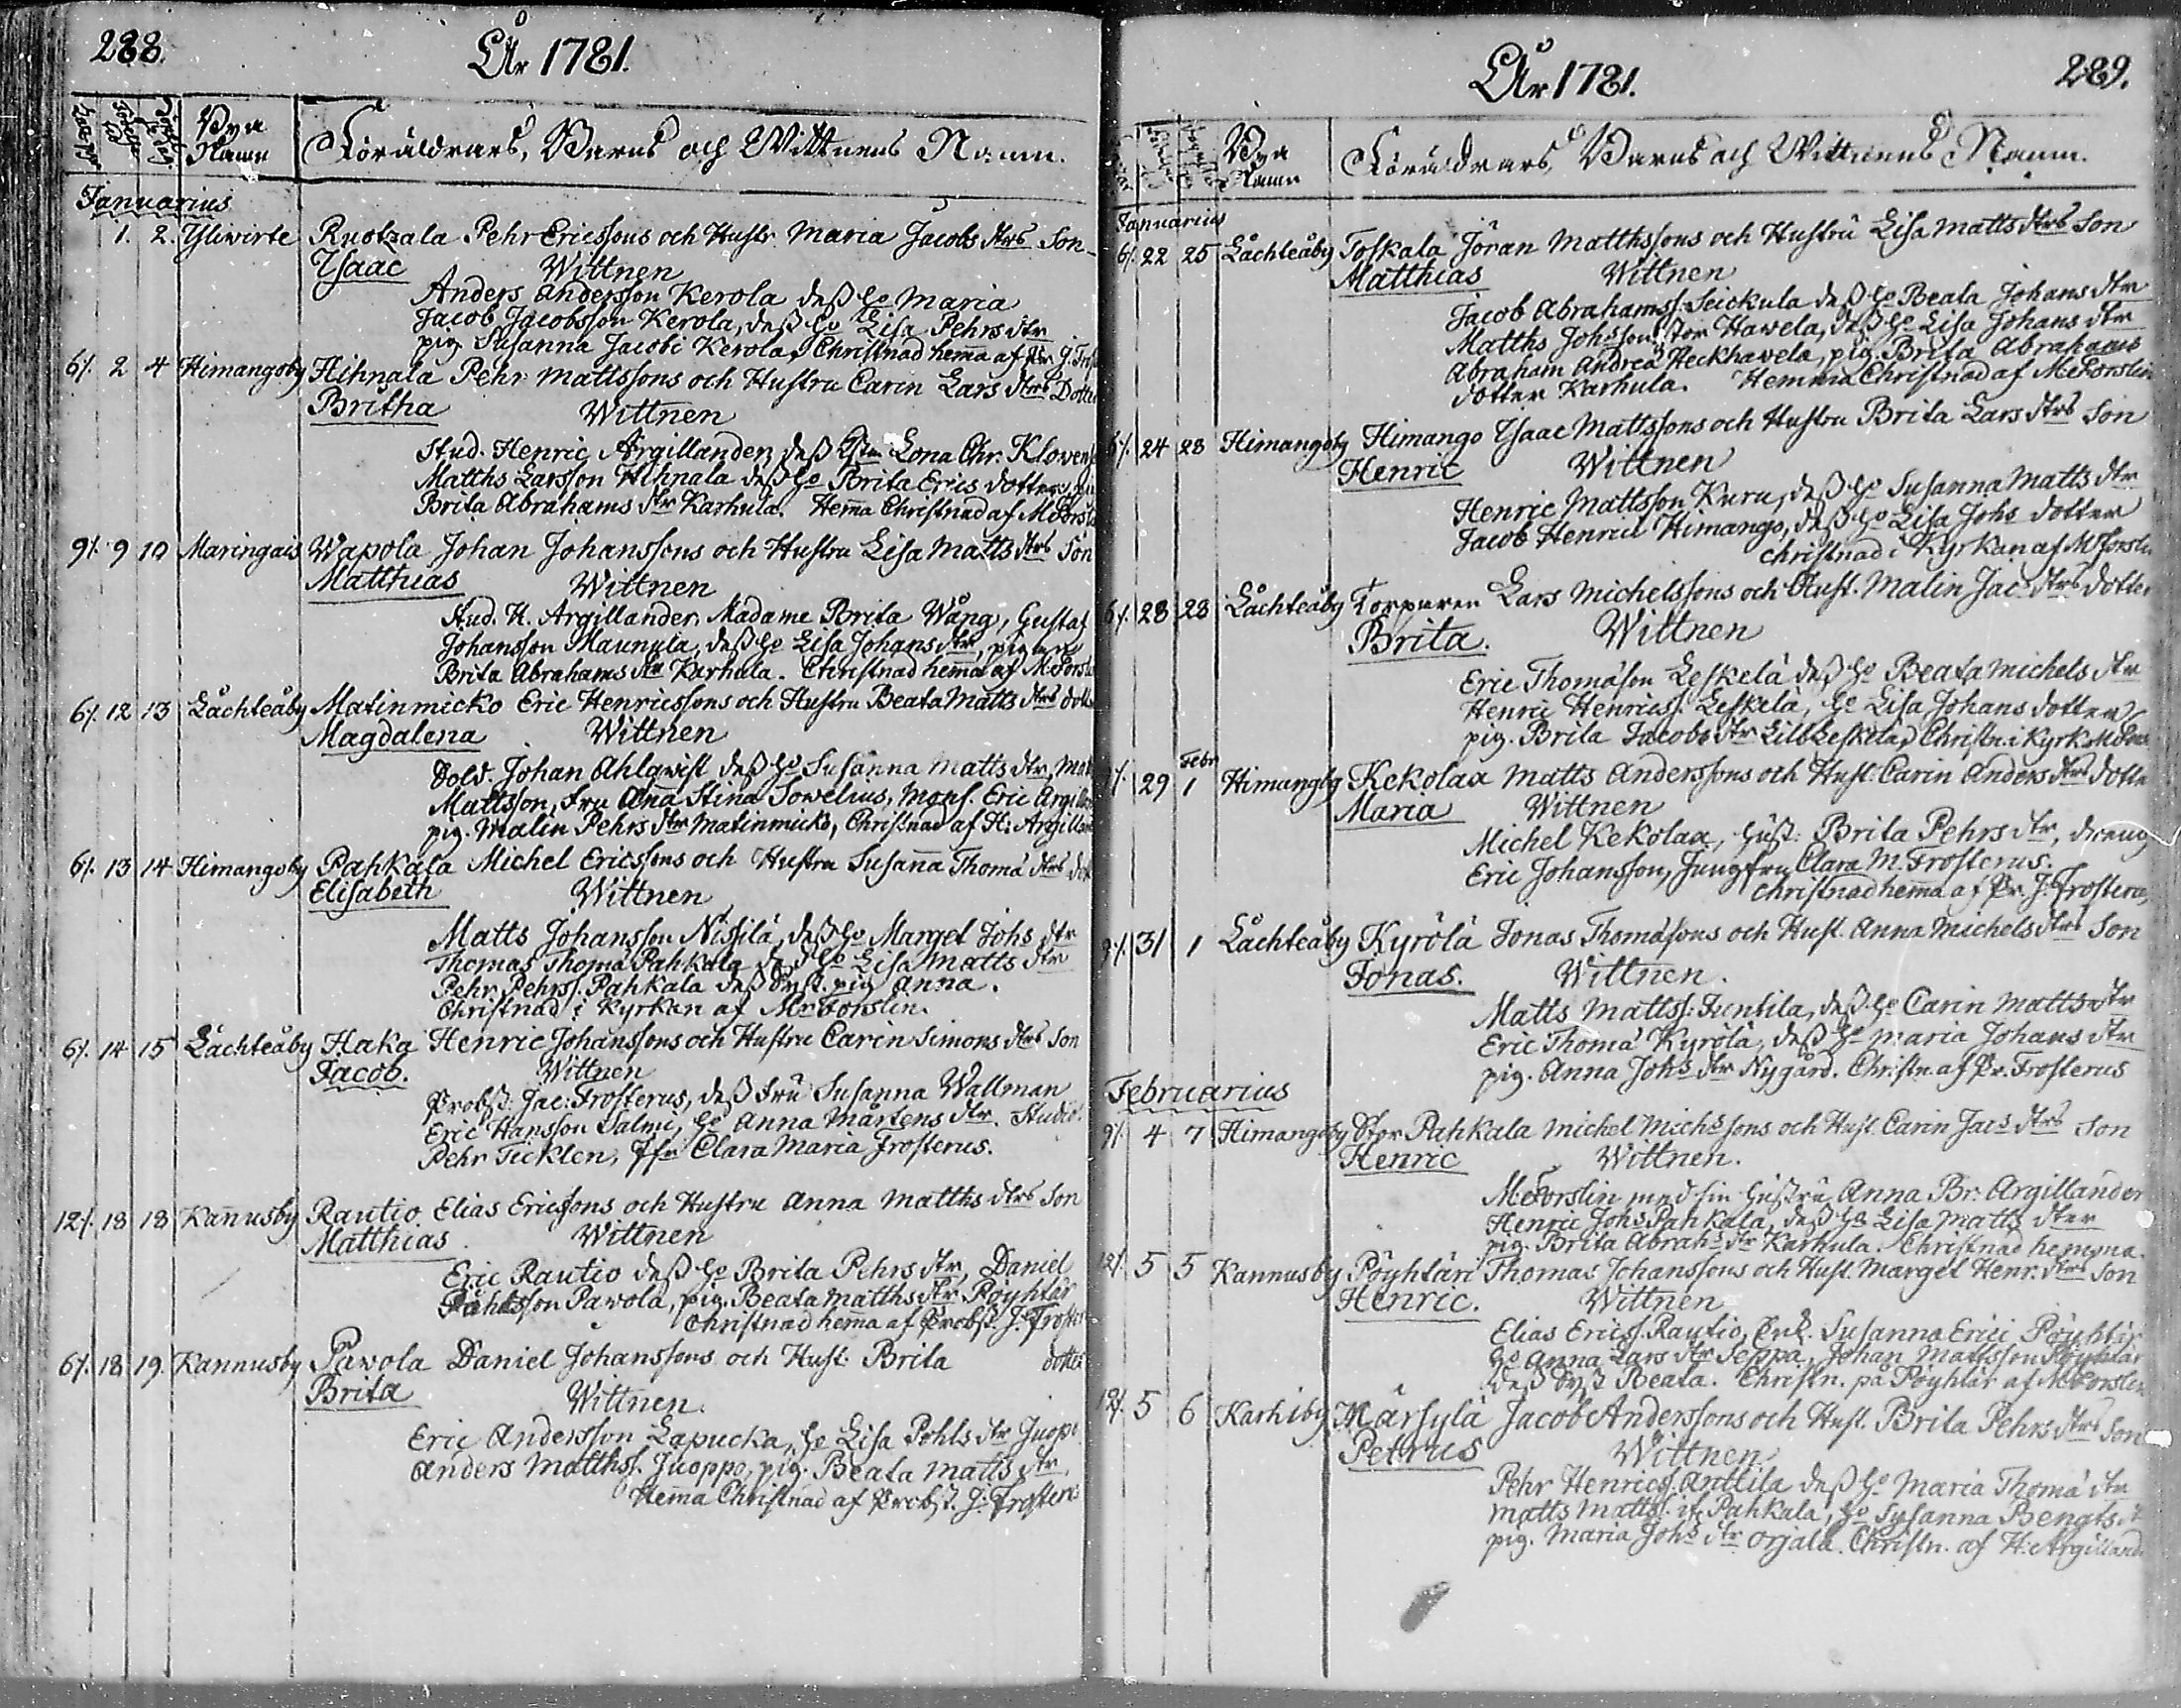 288.
År 1781.
Bya Namn
Föräldrars, Barns och Wittnens Namn.
Januarius
1. 2. Ylewirte Ruotzala Pehr Ericssons och Hustr Maria Jacobs dtrs Son
Ysaac Wittnen
Anders Andersson Kerola deß hо Maria
Jacob Jacobsson Kerola, deß ho Lisa Pehrs dtr
pig Susanna Jacobi Kerola, Christnad hem̄a af Pr. J. Frost
6/. 2 4 Himangoby Hihnala Pehr Mattssons och Hustru Carin Lars dtrs Dotter
Britha Wittnen
Stud. Henric Argillander, deß Lona Chr. Klowen
Matths Larsson Hihnala deß ho Brita Erics dotter,
Brita Abrahams dtr Karhula. Hem̄a Christnad af M. Forsl
9/. 9 10 Maringais Wapola Johan Johanssons och Hustru Lisa Matts dtrs Son
Matthias Wittnen
Stud. H. Argillander, Madame Brita Wång, Gustaf
Johansson Maunula, deß ho Lisa Johans dtr, pigan
Brita Abrahams dtr Karhula. Christnad hem̄a af M. Forsl
6/. 12 13 Låchteåby Matinmicko Eric Henricssons och Hustru Beata Matts dtrs dott
Magdalena Wittnen
Sold. Johan Ahlqwist deß ho Susanna Matts dtr, Matts
Mattsson, Fru An̄a Stina Sowelius, Mons. Eric Argill
pig. Malin Pehrs dtr Matinmicko, Christnad af H: Argilland
6/. 13 14 Himangoby Pahkala Michel Ericssons och Hustru Susan̄a Thomæ dtrs dot
Elisabeth Wittnen
Matts Johansson Nissilä, deß ho Marget Johs dtr
Thomas Thomæ Pahkala deß ho Lisa Matts dtr
Pehr Pehrss. Pahkala deß Syst. pig Anna.
Christnad i Kyrkan af Mr Forslin.
6/. 14 15 Låchteåby Haka Henric Johanssons och Hustru Carin Simons dtrs Son
Jacob. Wittnen
Probst. Jac: Frosterus, deß Fru Susanna Wallman
Eric Hansson Salmi, ho Anna Mårtens dtr. Studios.
Pehr Ticklen, Jfr Clara Maria Frosterus.
12/. 18 18 Kan̄usby Rautio Elias Ericssons och Hustru Anna Matths dtrs Son
Matthias Wittnen
Eric Rautio deß ho Brita Pehrs dtr, Daniel
Pawola, pig. Beata Matths dtr Pöyhtär
Christnad hem̄a af Probst. J. Froster
6/. 18 19. Kannusby Pawola Daniel Johanssons och Hust. Brita dotter
Brita Wittnen
Eric Andersson Lapucka, ho Lisa Pohls dtr Juopo
Anders Matthss. Juoppo, pig. Beata Matts dtr
Hem̄a Christnad af Probst. J. Frosterus
289.
År 1781.
Bya Namn
Föräldrars, Barns och Wittnens Namn.
Januarius
6/. 22 25 Låchteåby Toskala Jöran Matthssons och Hustru Lisa Matts dtrs Son
Matthias Wittnen
Jacob Abrahamss. Seickula deß ho Beata Johans dtr
Matths Johsson Stor Hawela, deß ho Lisa Johans dtr
Abraham Andreæ Heckhawela, pig. Brita Abrahams
dotter Karhula. Hemma Christnad af M. Forslin
6/. 24 28 Himangoby Himango Ysaac Mattssons och Hustru Brita Lars dtrs Son
Henric Wittnen
Henric Mattsson Kuru, deß ho Susanna Matts dtr
Jacob Henrici Himango, deß ho Lisa Johs dotter
Christnad i Kyrkan af M Forslin
6/. 28 28 Låchteåby Torparen Lars Michelssons och Hust. Malin Jac dtrs dotter
Brita. Wittnen
Eric Thomæson Leskelä deß ho Beata Michels dtr
Henric Henricss. Leskelä, ho Lisa Johans dotter
pig. Brita Jacobs dtr Lill Leskelä, Christn. i Kyrk. M. Fors
Febr
9/. 29 1 Himangby Kekolax Matts Anderssons och Hust. Carin Anders dtrs dotter
Maria Wittnen
Michel Kekolax, hust: Brita Pehrs dtr, dreng
Eric Johansson, Jungfru Clara M. Frosterus.
Christnad hem̄a af Pr. J. Frosterus
9/. 31 1 Låchteåby Kyrölä Jonas Thomæsons och Hust. Anna Michels dtrs Son
Jonas. Wittnen.
Matts Mattss. Juntila, deß ho Carin Matts dtr
Eric Thomæ Kyrölä, deß ho Maria Johans dtr
pig. Anna Johs dtr Nygård. Christn. af Pr. Frosterus
Februarius
9/. 4 7 Himangoby Stor Pahkala Michel Michssons och Hust. Carin Jacs dtrs Son
Henric Wittnen.
M. Forslin med sin hustru Anna Br: Argillander
Henric Johs Pahkala, deß ho Lisa Matts dter
pig. Brita Abrahs dtr Karhula. Christnad hemma.
12/. 5 5 Kannusby Pöyhtäri Thomas Johanssons och Hust. Marget Henr. dtrs Son
Henric. Wittnen
Elias Ericss. Rautio, Susanna Erici Pöyhtär
ho Anna Lars dtr Seppä, Johan Mattsson Pöyhtär
deß Syst Beata. Christn. på Pöyhtär af M. Forslin
12/. 5 6 Karhiby Märsylä Jacob Anderssons och Hust. Brita Pehrs dtrs Son
Petrus Wittnen
Pehr Henricss. Anttila deß ho Maria Thomæ dtr
Matts Mattss. Pahkala, ho Susanna Bengts
pig. Maria Johs dtr Orjala. Christn. af H: Argilland